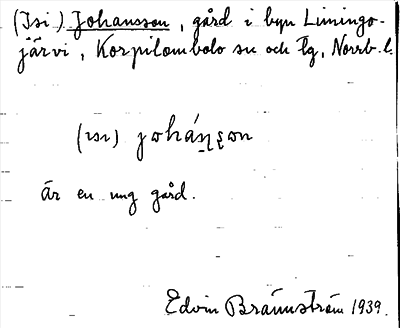 (Isi) Johansson, gård i byn Livingo-
järvi, Korpilombolo sn och tg, Norrb. l.
(ısı) johán̥s̨on
Är en ung gård.
Edvin Brännström 1939.